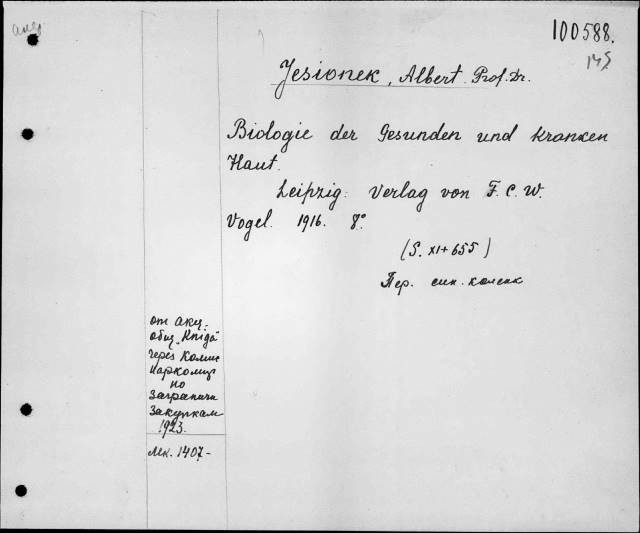 100588.
145
Jesionek, Albert. Prof. Dr.
Biologie der Gesunden und Kranken
Haut.
Leipzig: Verlag von F. C. W.
Vogel. 1916. 8°
(S. XI + 655)
Пер. син. коленк
от акц.
общ. „Kniga“
через Комис
Наркомпр
по
Загранич
Закупкам
1923.
Мк. 1407-